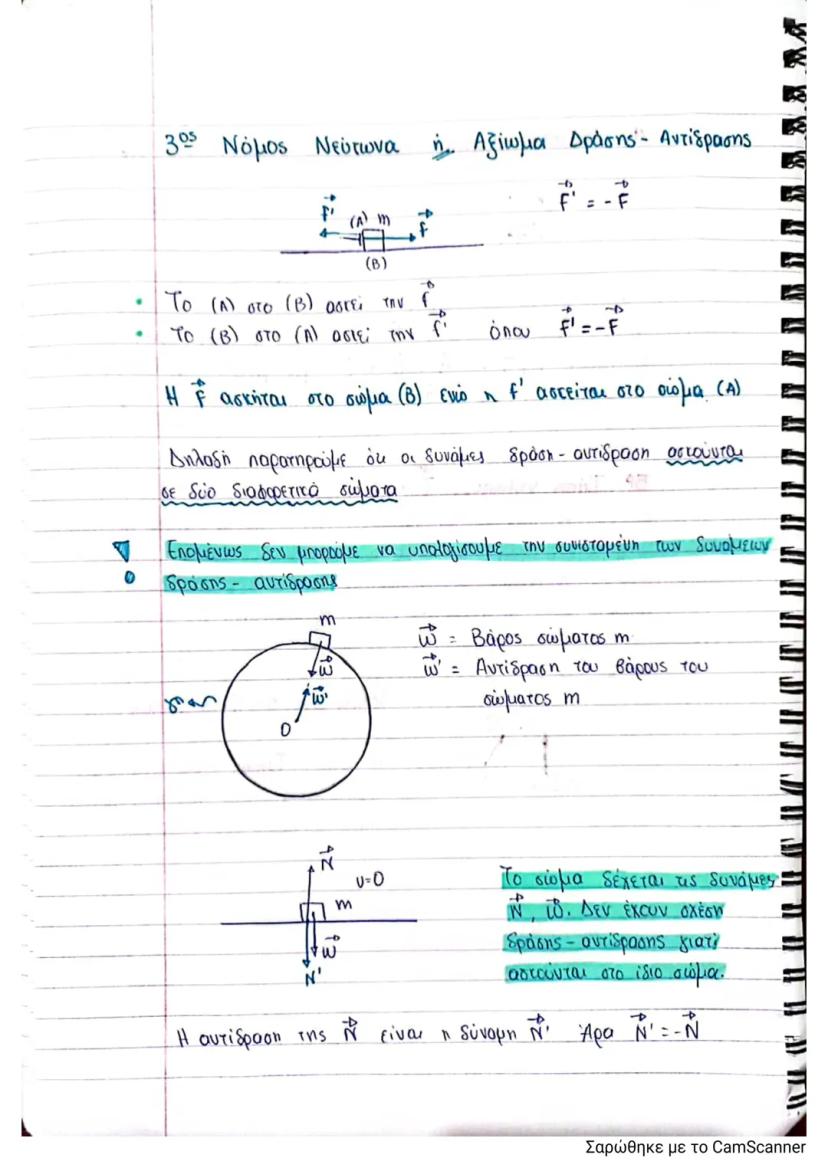 3ος Νόμος Νεύτωνα ή Αξίωμα Δράσης - Αντίδρασης
F' (A) m F F' = -F
(B)
• Το (A) στο (B) ασκεί την f
• Το (B) στο (A) ασκεί την f' όπου F' = -F
Η F ασκήται στο σώμα (B) ενώ η f' ασκείται στο σώμα (A)
Δηλαδή παρατηρούμε ότι οι δυνάμεις δράση - αντίδραση ασκούνται
σε δύο διαφορετικά σώματα
Επομένως δεν μπορούμε να υπολογίσουμε την συνισταμένη των δυνάμεων
δράσης - αντίδρασης
m
w = Βάρος σώματος m
w
w' = Αντίδραση του βάρους του
σώματος m
w'
γη
O
N
υ=0
m
w
N'
Το σώμα δέχεται τις δυνάμεις
N, w. Δεν έχουν σχέση
δράσης - αντίδρασης γιατί
ασκούνται στο ίδιο σώμα.
Η αντίδραση της N είναι η δύναμη N' Άρα N' = -N
Σαρώθηκε με το CamScanner